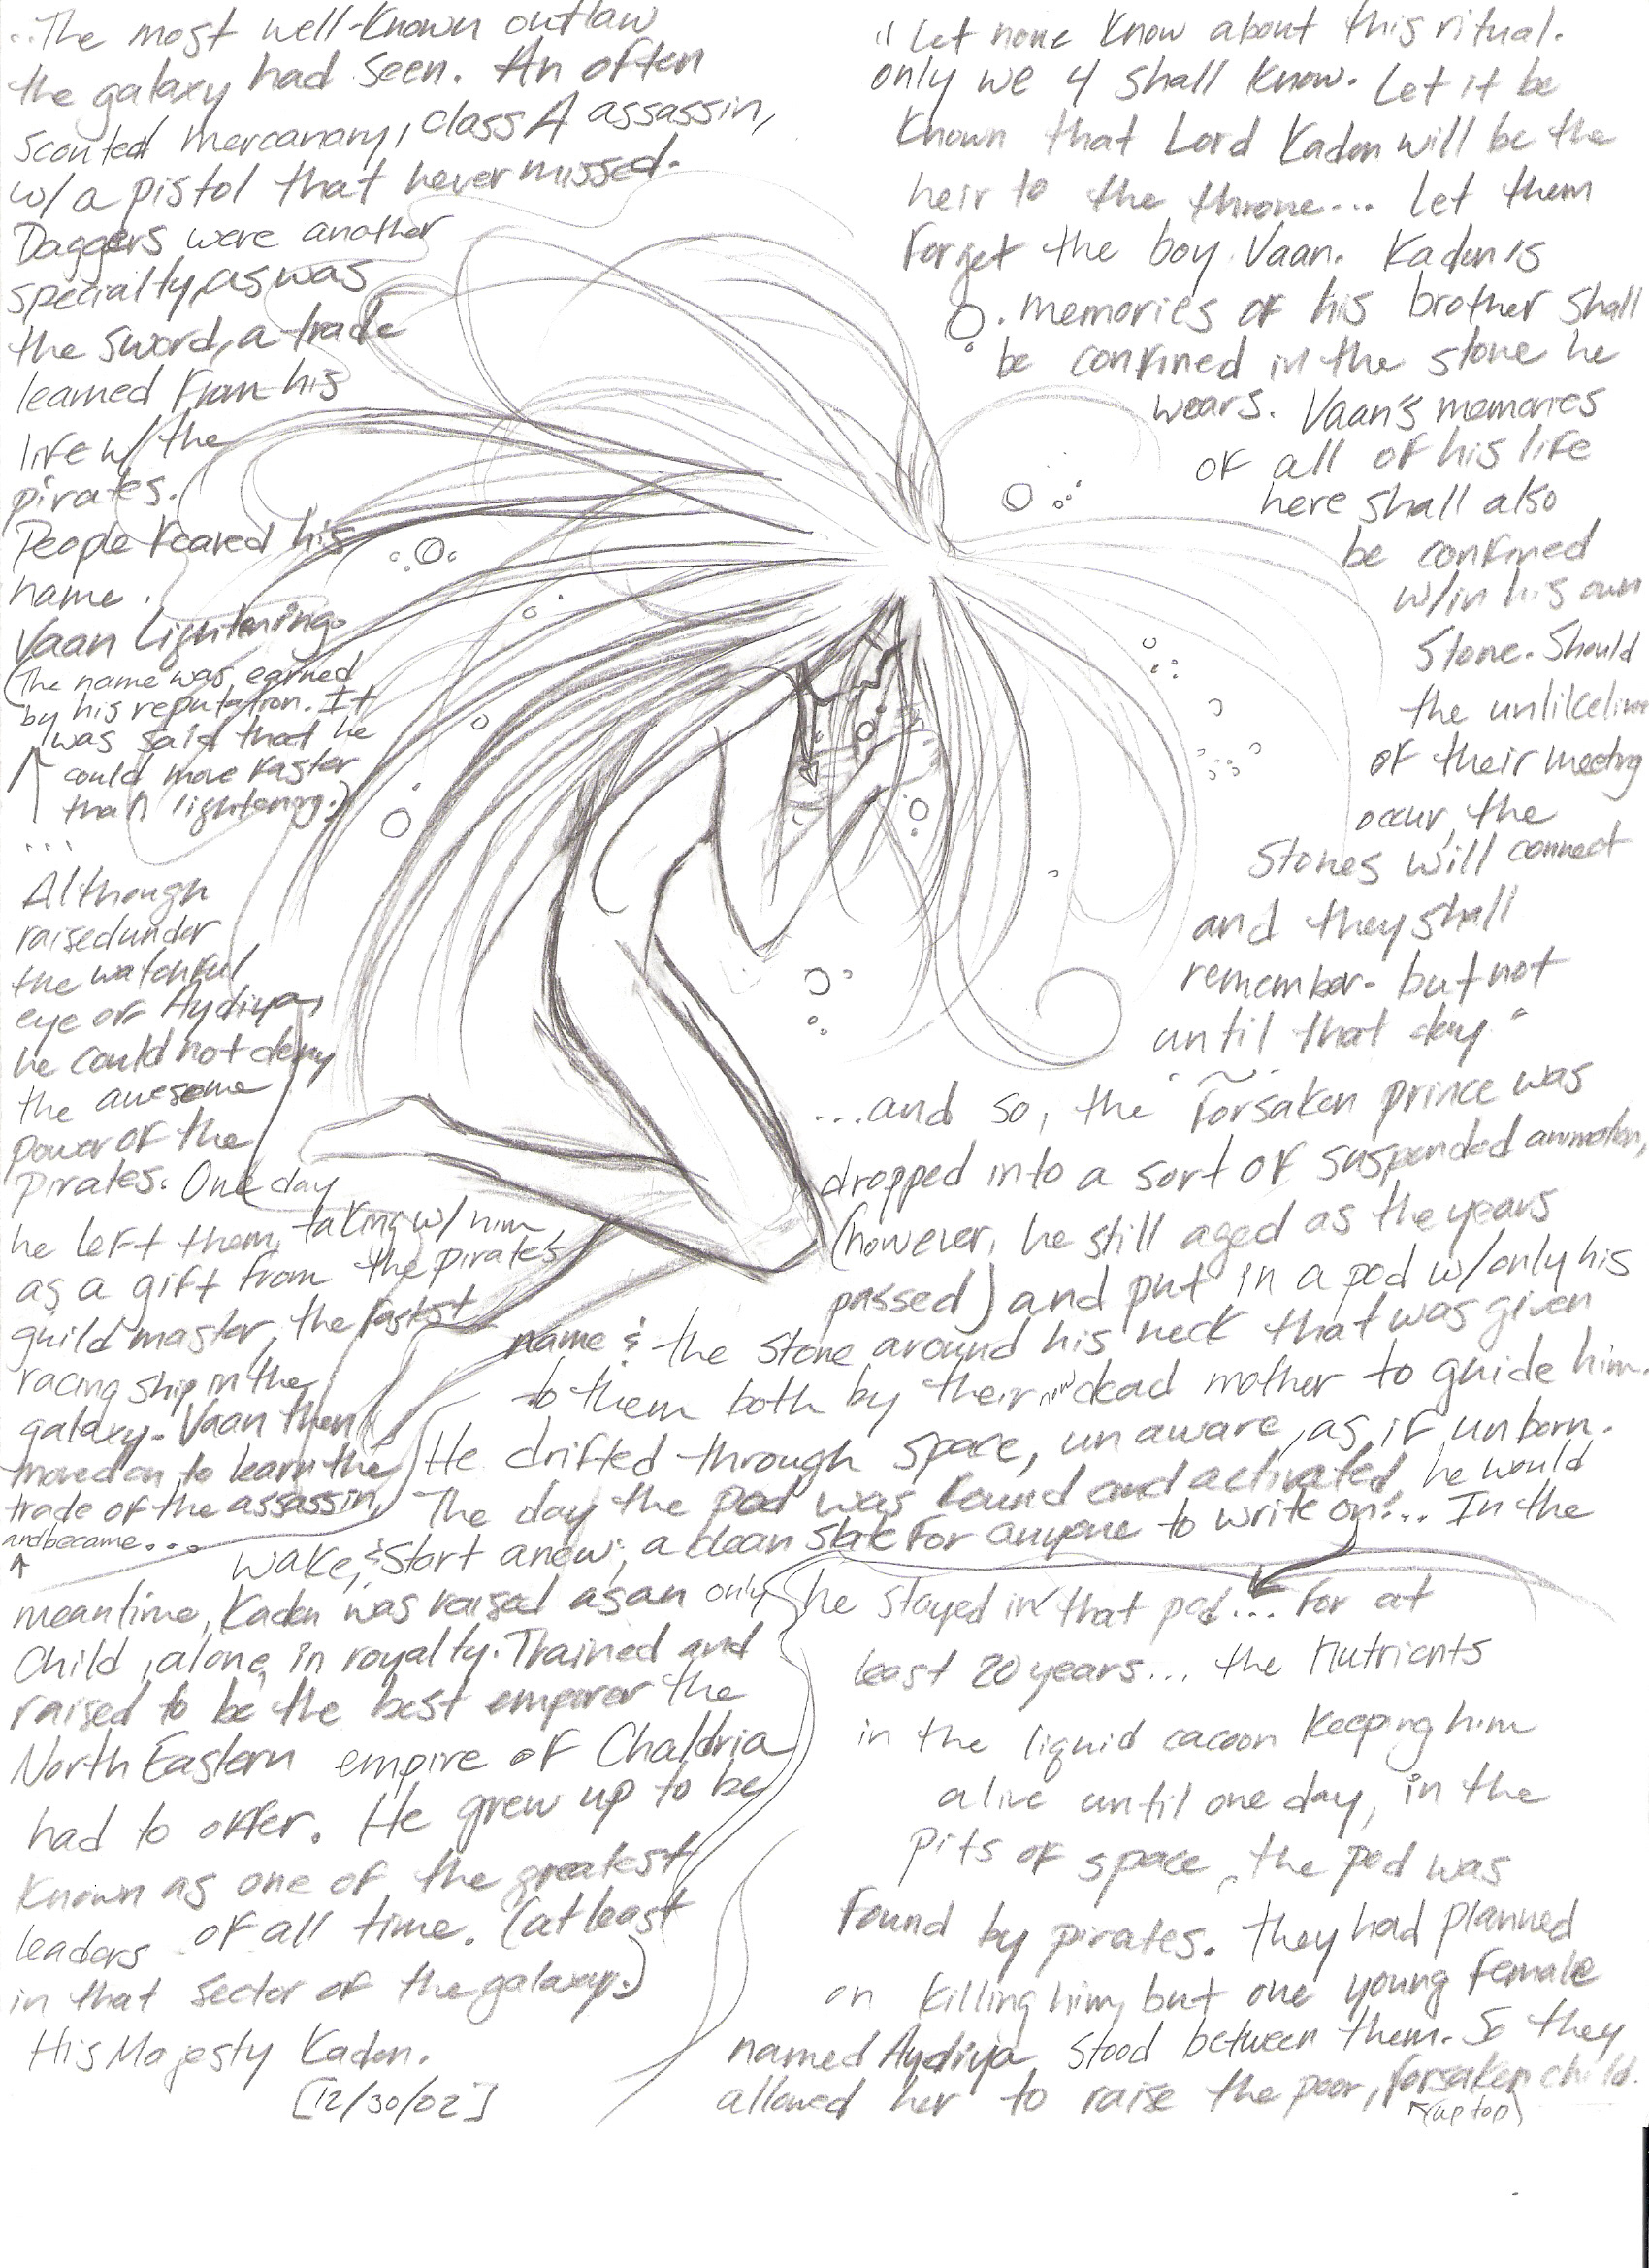 "Let none know about this ritual.
only we 4 shall know. Let it be
known that Lord Kadon will be the
heir to the throne... let them
forget the boy Vaan. Kadon's
memories of his brother shall
be confined in the stone he
wears. Vaan's memories
of all of his life
here shall also
be confined
w/in his own
stone. Should
the
of their meeting
occur, the
stones will connect
and they shall
remember. but not
until that day"
~
...and so, the forsaken prince was
dropped into a sort of suspended animation,
(however, he still aged as the years
passed) and put in a pod w/ only his
name & the stone around his neck that was given
to them both by their now dead mother to guide him.
He drifted through space, unaware, as if unborn.
The day the pod was found and activated, he would
wake, & start anew, a clean slate for anyone to write on!... In the
meantime, Kadon was raised as an only
child, alone, in royalty. Trained and
raised to be the best emperor the
North Eastern empire of Chaldria
had to offer. He grew up to be
known as one of the greatest
leaders of all time. (at least
in that sector of the galaxy.)
His Majesty Kadon.
[12/30/02]
he stayed in that pod... for at
least 20 years... the nutrients
in the liquid cacoon keeping him
alive until one day, in the
pits of space, the pod was
found by pirates. they had planned
on killing him, but one young female
named Aydiya stood between them. So they
allowed her to raise the poor, forsaken child.
(up top)
...The most well-known outlaw
the galaxy had seen. An often
scouted mercanary, class A assassin,
w/ a pistol that never missed.
Daggers were another
specialty, as was
the sword, a trade
learned from his
life w/ the
pirates.
People feared his
name.
Vaan Lightening.
(The name was earned
by his reputation. It
was said that he
could move faster
than lightening.)
...
Although
raised under
the watchful
eye of Aydiya,
he could not deny
the awesome
power of the
pirates. One day
he left them, taking w/ him
as a gift from the pirate's
guild master, the fastest
racing ship in the
galaxy. Vaan then
moved on to learn the
trade of the assassin,
and became...